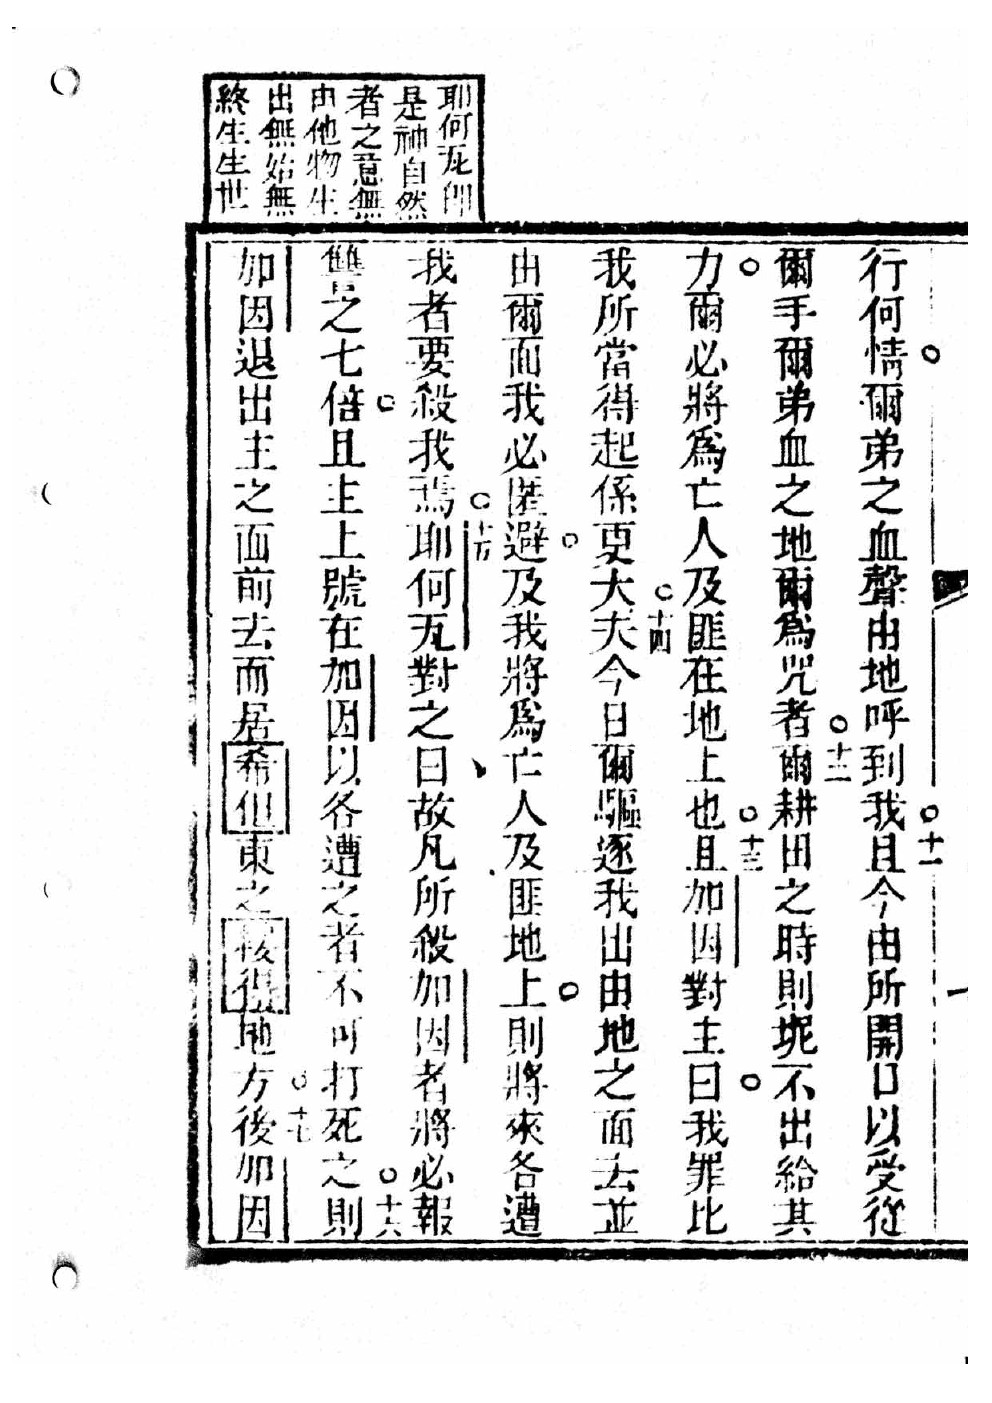 耶何瓦卽
是神自然
者之意無
由他物生
出無始無
終生生世
十一
行何情爾弟之血聲由地呼到我且今由所開口以受從
十二
爾手爾弟血之地爾爲咒者爾耕田之時則坭不出給其
十三
力爾必將爲亡人及匪在地上也且加因對主曰我罪比
十四
我所當得起係更大夫今日爾驅逐我出由地之面去並
由爾面我必匿避及我將爲亡人及匪地上則將來各遭
十五
我者要殺我焉耶何瓦對之曰故凡所殺加因者將必報
十六
讐之七倍且主上號在加因以各遭之者不可打死之則
十七
加因退出主之面前去而居希但東之得地方後加因